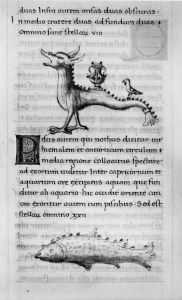 duas infra autem ansas duas obscuras
in medio cratere duas ad fundum duas
omnino sunt stellae VIII
Piscis autem qui nothus dicitur int
hiemalem et antarticum circulum
media regione collocatus spectare
ad exortum uidetur inter capricornum et
aquarium ore excipiens aquam que fun
ditur ab aquario huc occidit oriente can
cro exoritur autem cum piscibus Sed est
stellarum omnino XXII